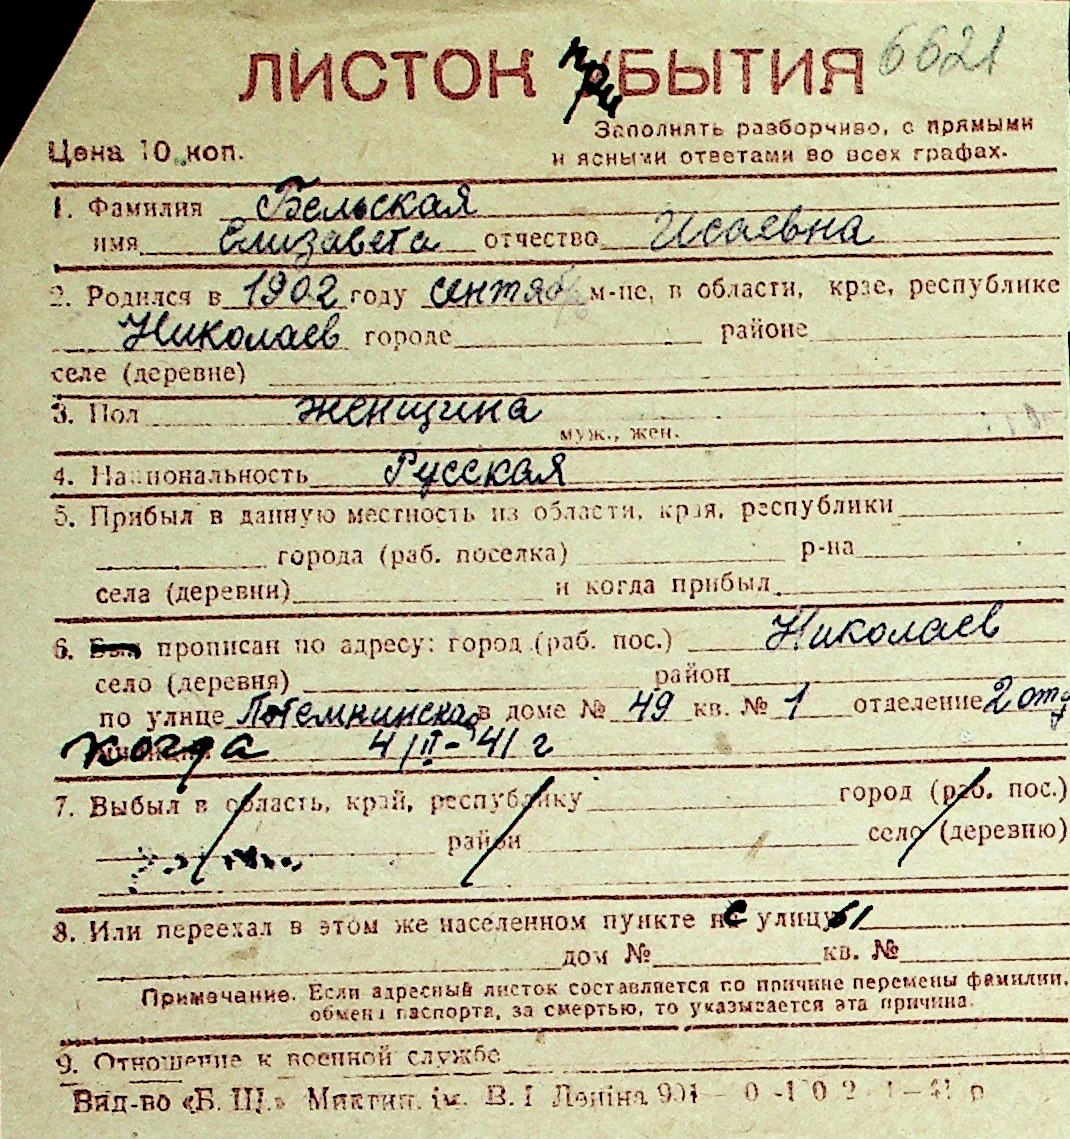 ЛИСТОК прибЫТИЯ 6621
Заполнять разборчиво, с прямыми
Цена 10 коп. и ясными ответами во всех графах.
1. Фамилия Бельская
имя Елизавета отчество Исаевна
2. Родился в 1902 году сентяб м-це, в области, крае, республике
Николаев городе районе
селе (деревне)
3. Пол женщина
муж., жен.
4. Национальность Русская
5. Прибыл в данную местность из области, края, республики
города (раб. поселка) р-на
села (деревни) и когда прибыл
6. Был прописан по адресу: город (раб. пос.) Николаев
село (деревня) район
по улице Потемкинская в доме № 49 кв. № 1 отделение 2 отд
когда 4/II-41 г
7. Выбыл в область, край, республику город (раб. пос.)
район село (деревню)
8. Или переехал в этом же населенном пункте с улицы
дом № кв. №
Примечание. Если адресный листок составляется по причине перемены фамилии,
обмена паспорта, за смертью, то указывается эта причина.
9. Отношение к военной службе
Вид-во «Б. Ш.» Миктип. ім. В. І Леніна